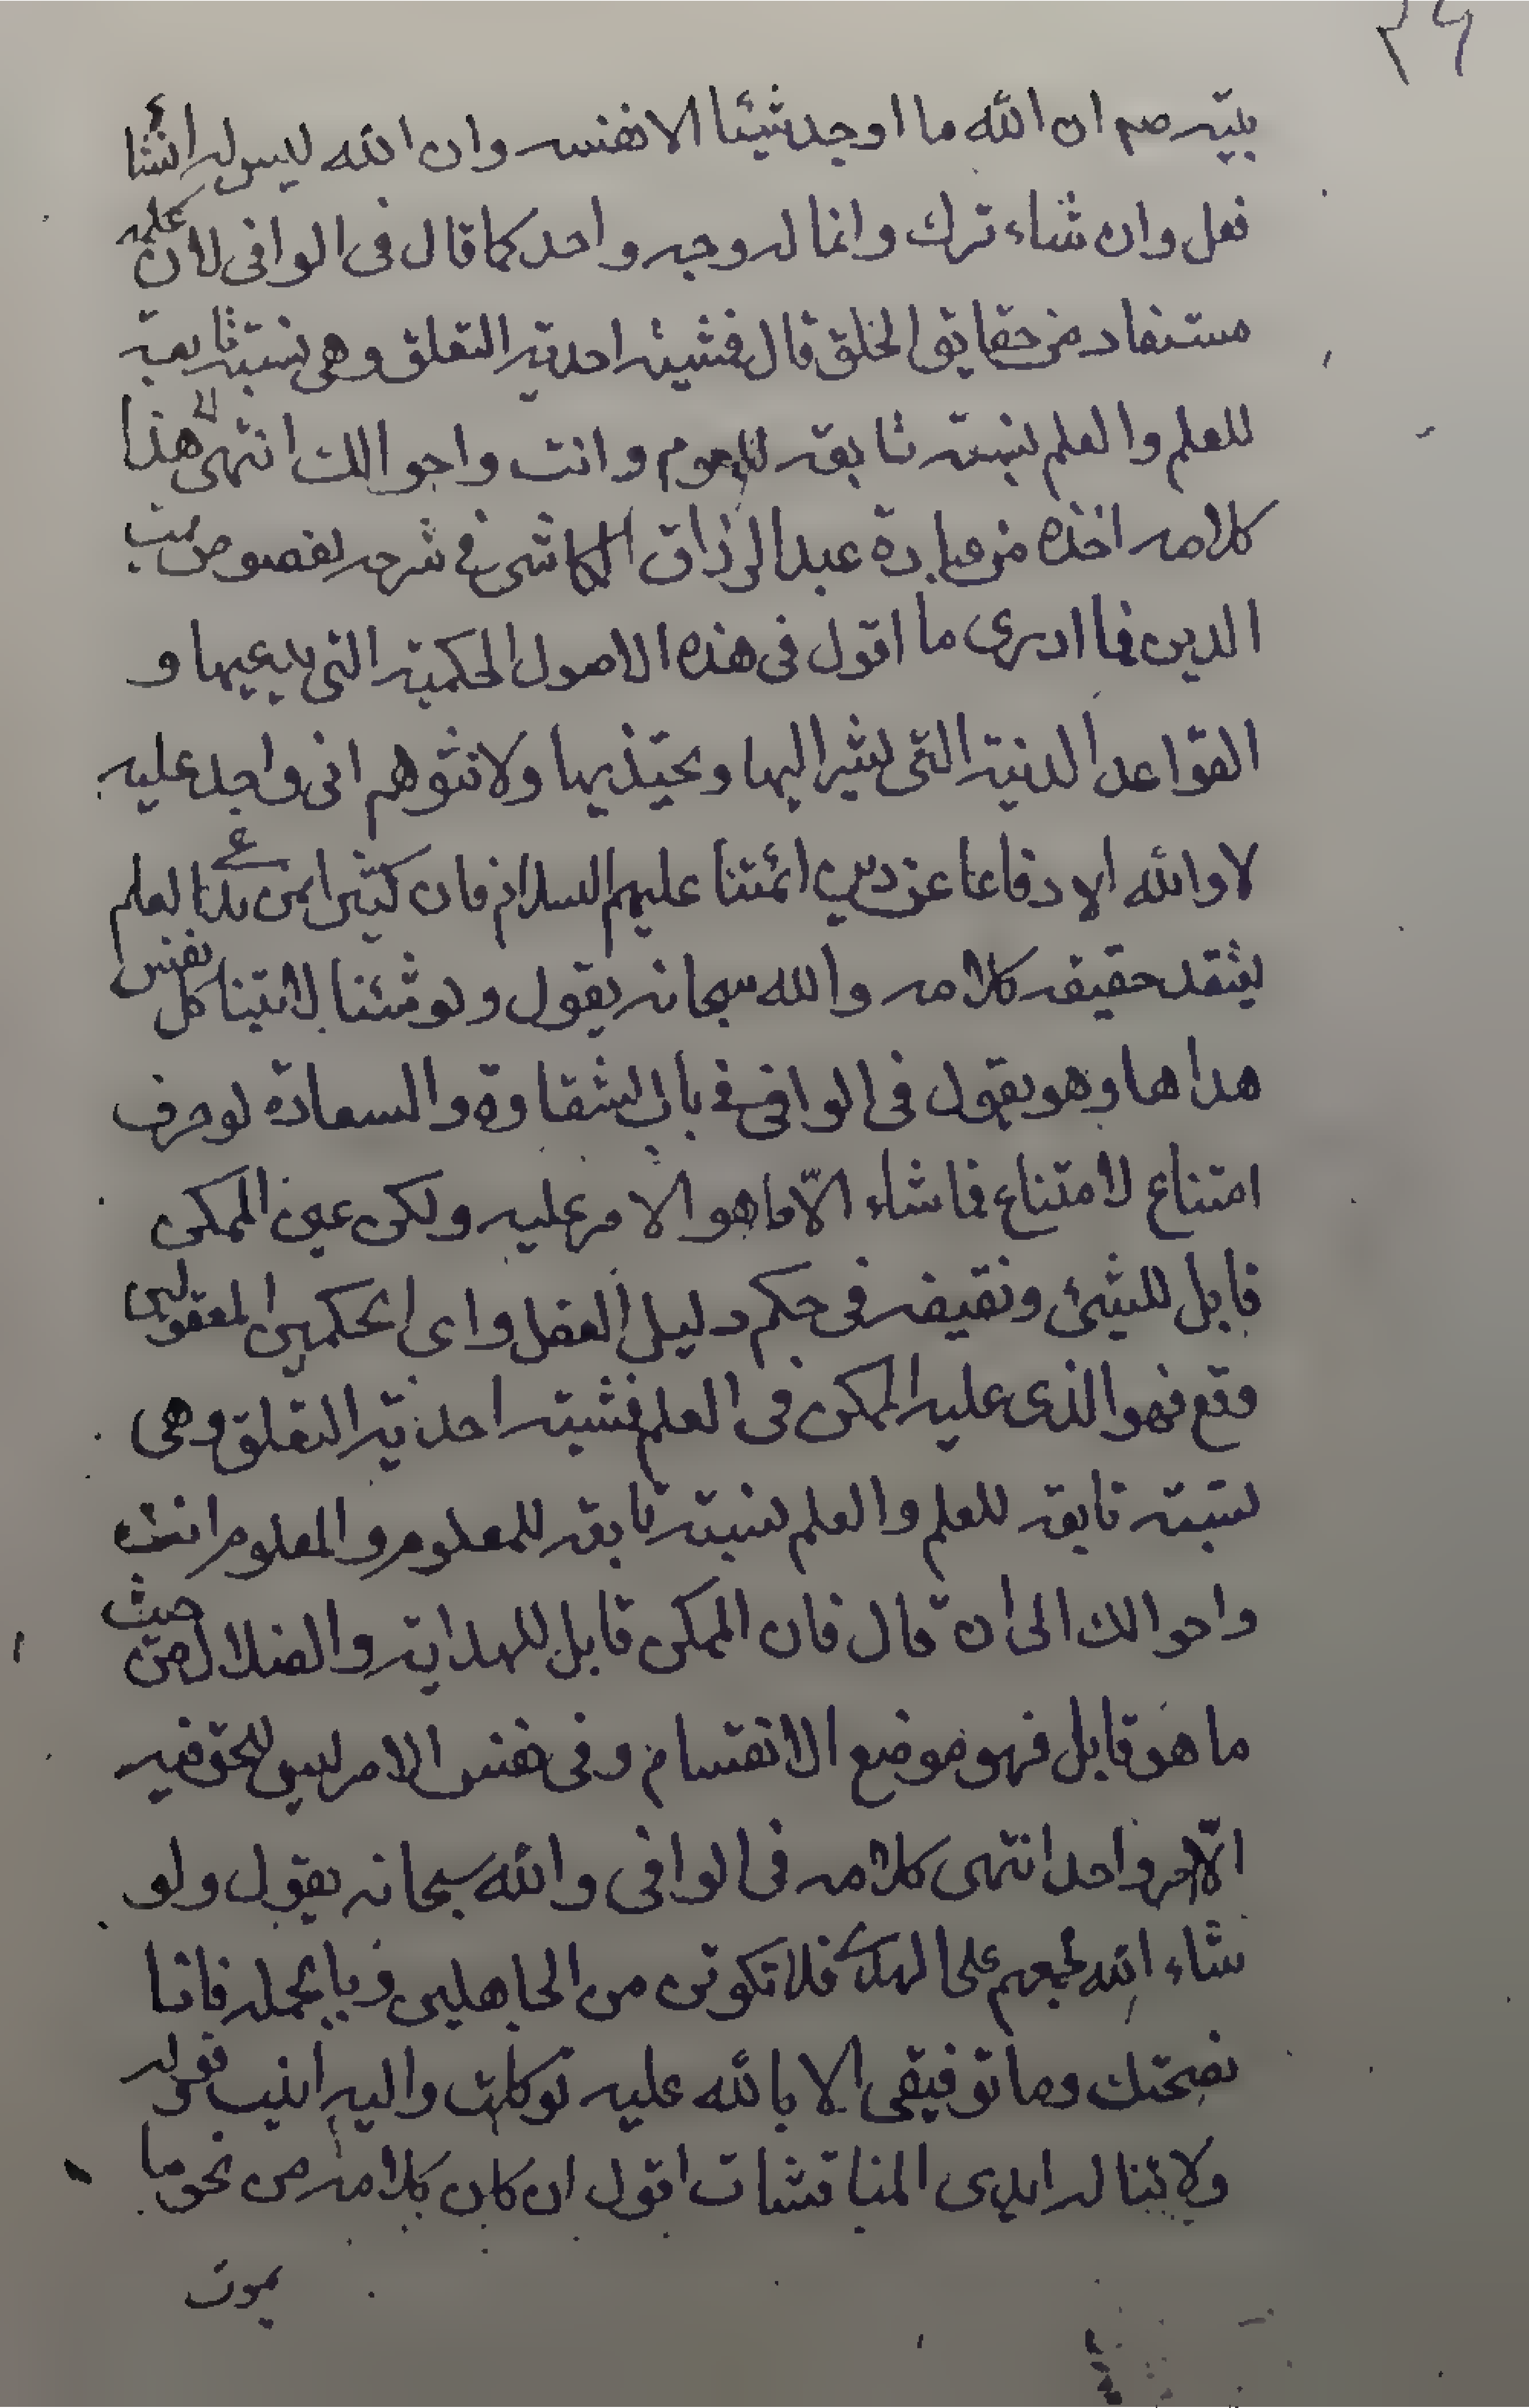 ٣٤
بنبيه صم ان الله ما اوجد شيئا الا نفسه وان الله ليس له ان شاء
فعل وان شاء ترك وانما له وجه واحد كما قال فى الوافى لان علمه
مستفاد من حقايق الخلق قال فمشيته احدية التعلق وهى نسبة تابعة
للعلم والعلم نسبة تابعة للمعلوم وانت واحوالك انتهى هذا
كلامه اخذه من عبارة عبد الرزاق الكاشى فى شرحه لفصوص مميت
الدين فما ادرى ما اقول فى هذه الاصول الحكمية التى يدعيها و
القواعد الدنية التى يشير اليها ويحتذيها ولا تتوهم انى واجد عليه
لا والله الا دفاعا عن دين ائمتنا عليهم السلام فان كثيرا ممن يدعى العلم
يعتقد حقيقة كلامه والله سبحانه يقول ولو شئنا لاتينا كل نفس
هداها وهو يقول فى الوافى فى باب الشقاوة والسعادة لو حرف
امتناع لامتناع فما شاء الّا ما هو الامر عليه ولكن عين الممكن
قابل للشئ ونقيضه فى حكم دليل العقل واى الحكمين المعقولين
وقع فهو الذى عليه الممكن فى العلم فمشيته احدية التعلق وهى
نسبة تابعة للعلم والعلم نسبة تابعة للمعلوم والمعلوم انت
واحوالك الى ان قال فان الممكن قابل للهداية والضلال من حيث
ما هو قابل فهو موضع الانقسام وفى نفس الامر ليس للحق فيه
الّا امر واحد انتهى كلامه فى الوافى والله سبحانه يقول ولو
شاء الله لجمعهم على الهدى فلا تكونن من الجاهلين وبالجملة فانا
نصحتك وما توفيقى الا بالله عليه توكلت واليه انيب قوله
ولا تناله ايدى المناقشات اقول ان كان كلامه من نحو ما
يموت